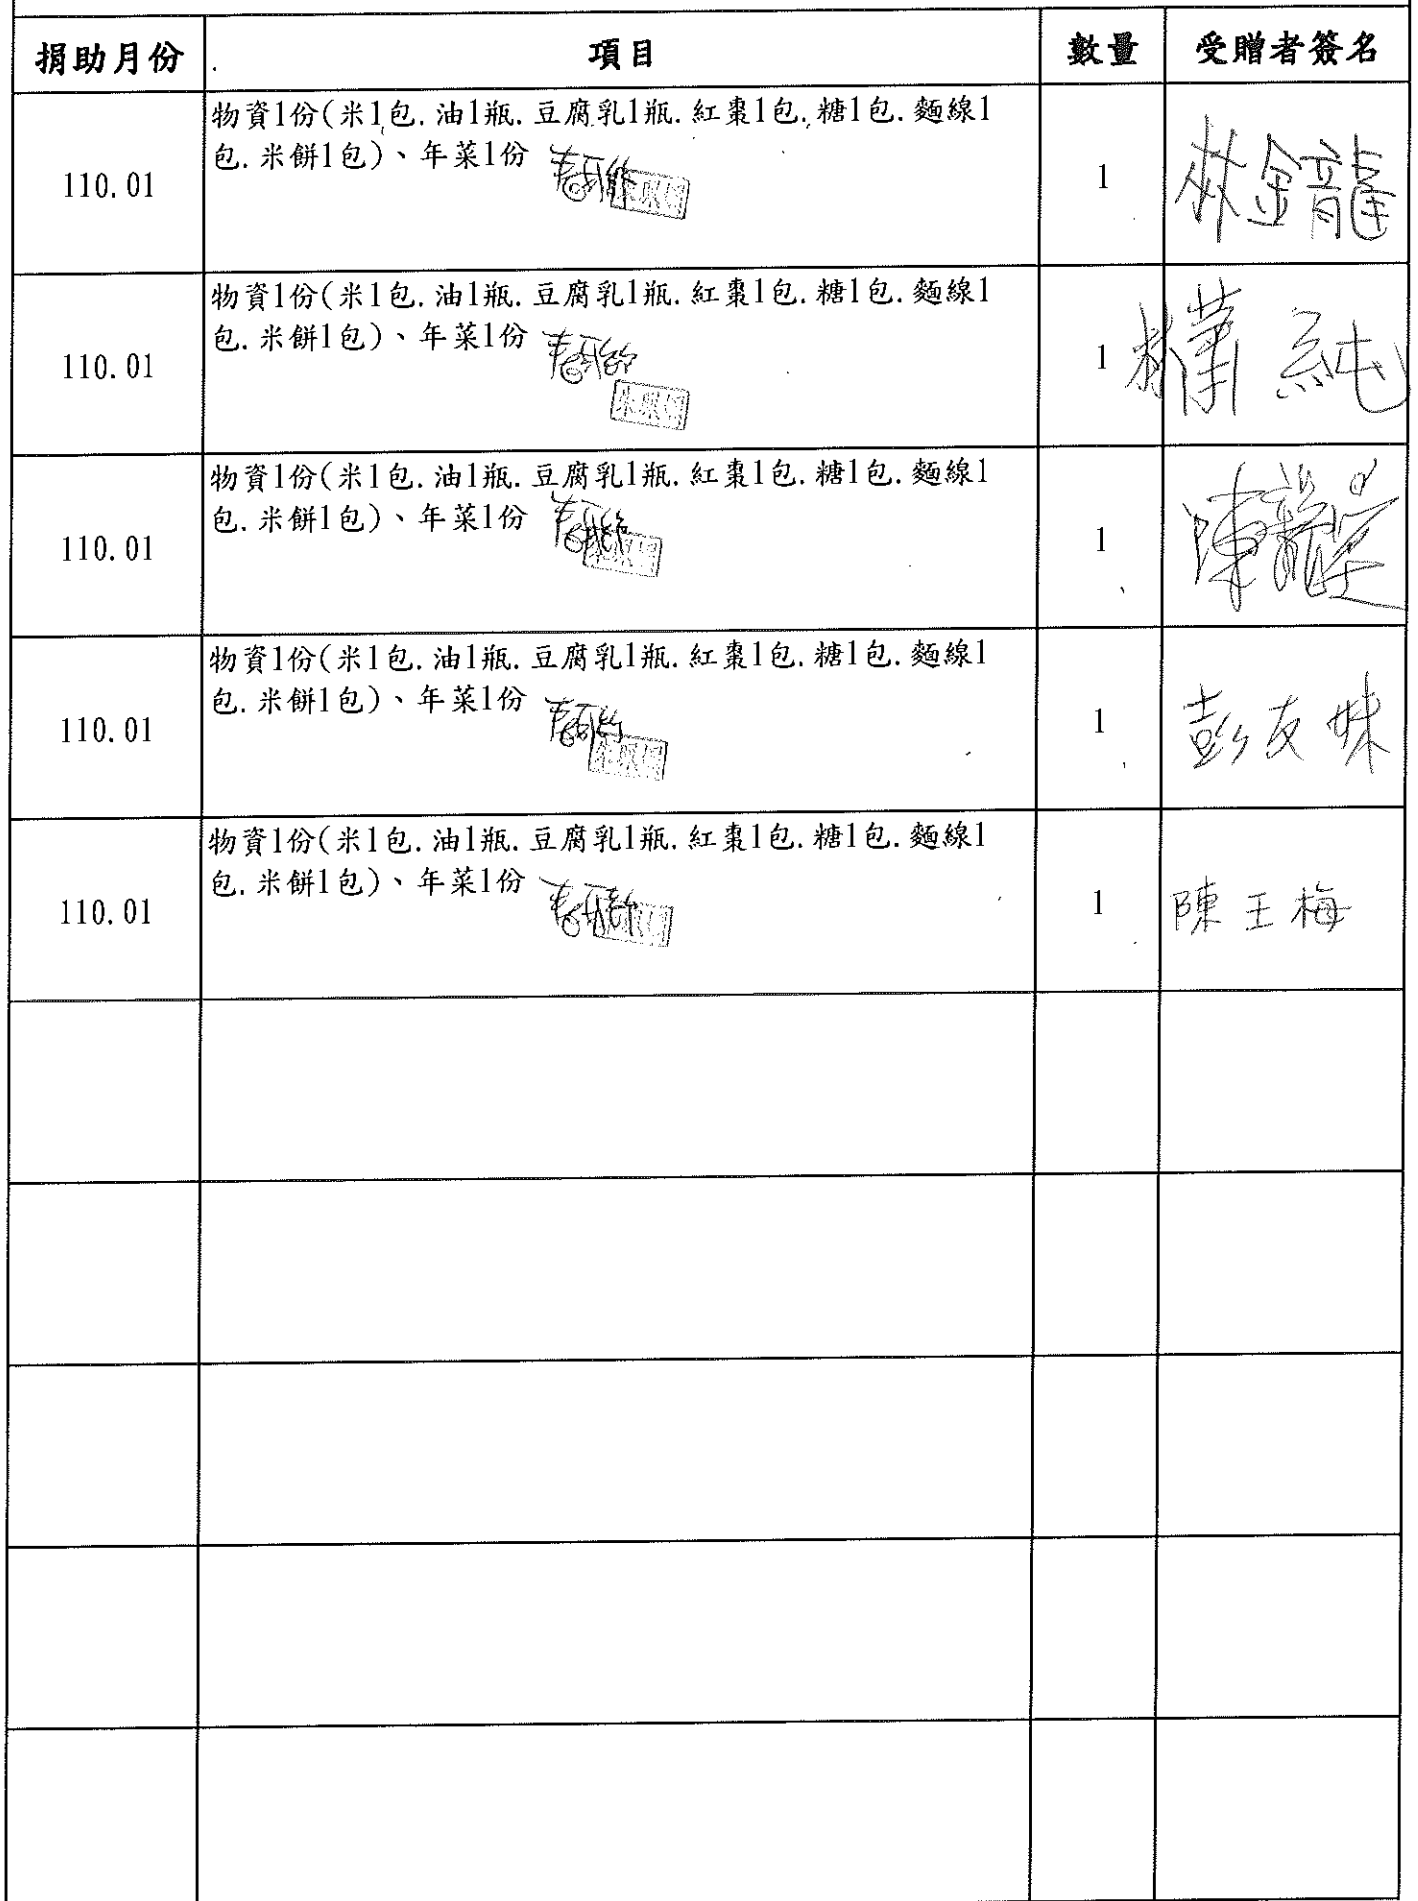 捐助月份 項目 數量 受贈者簽名
物資1份(米1包.油1瓶.豆腐乳1瓶.紅棗1包.糖1包.麵線1
包.米餅1包)、年菜1份
110.01 1 林金龍
物資1份(米1包.油1瓶.豆腐乳1瓶.紅棗1包.糖1包.麵線1
包.米餅1包)、年菜1份
110.01 1
物資1份(米1包.油1瓶.豆腐乳1瓶.紅棗1包.糖1包.麵線1
包.米餅1包)、年菜1份
110.01 1
物資1份(米1包.油1瓶.豆腐乳1瓶.紅棗1包.糖1包.麵線1
包.米餅1包)、年菜1份
110.01 1 彭友妹
物資1份(米1包.油1瓶.豆腐乳1瓶.紅棗1包.糖1包.麵線1
包.米餅1包)、年菜1份
110.01 1 陳王梅